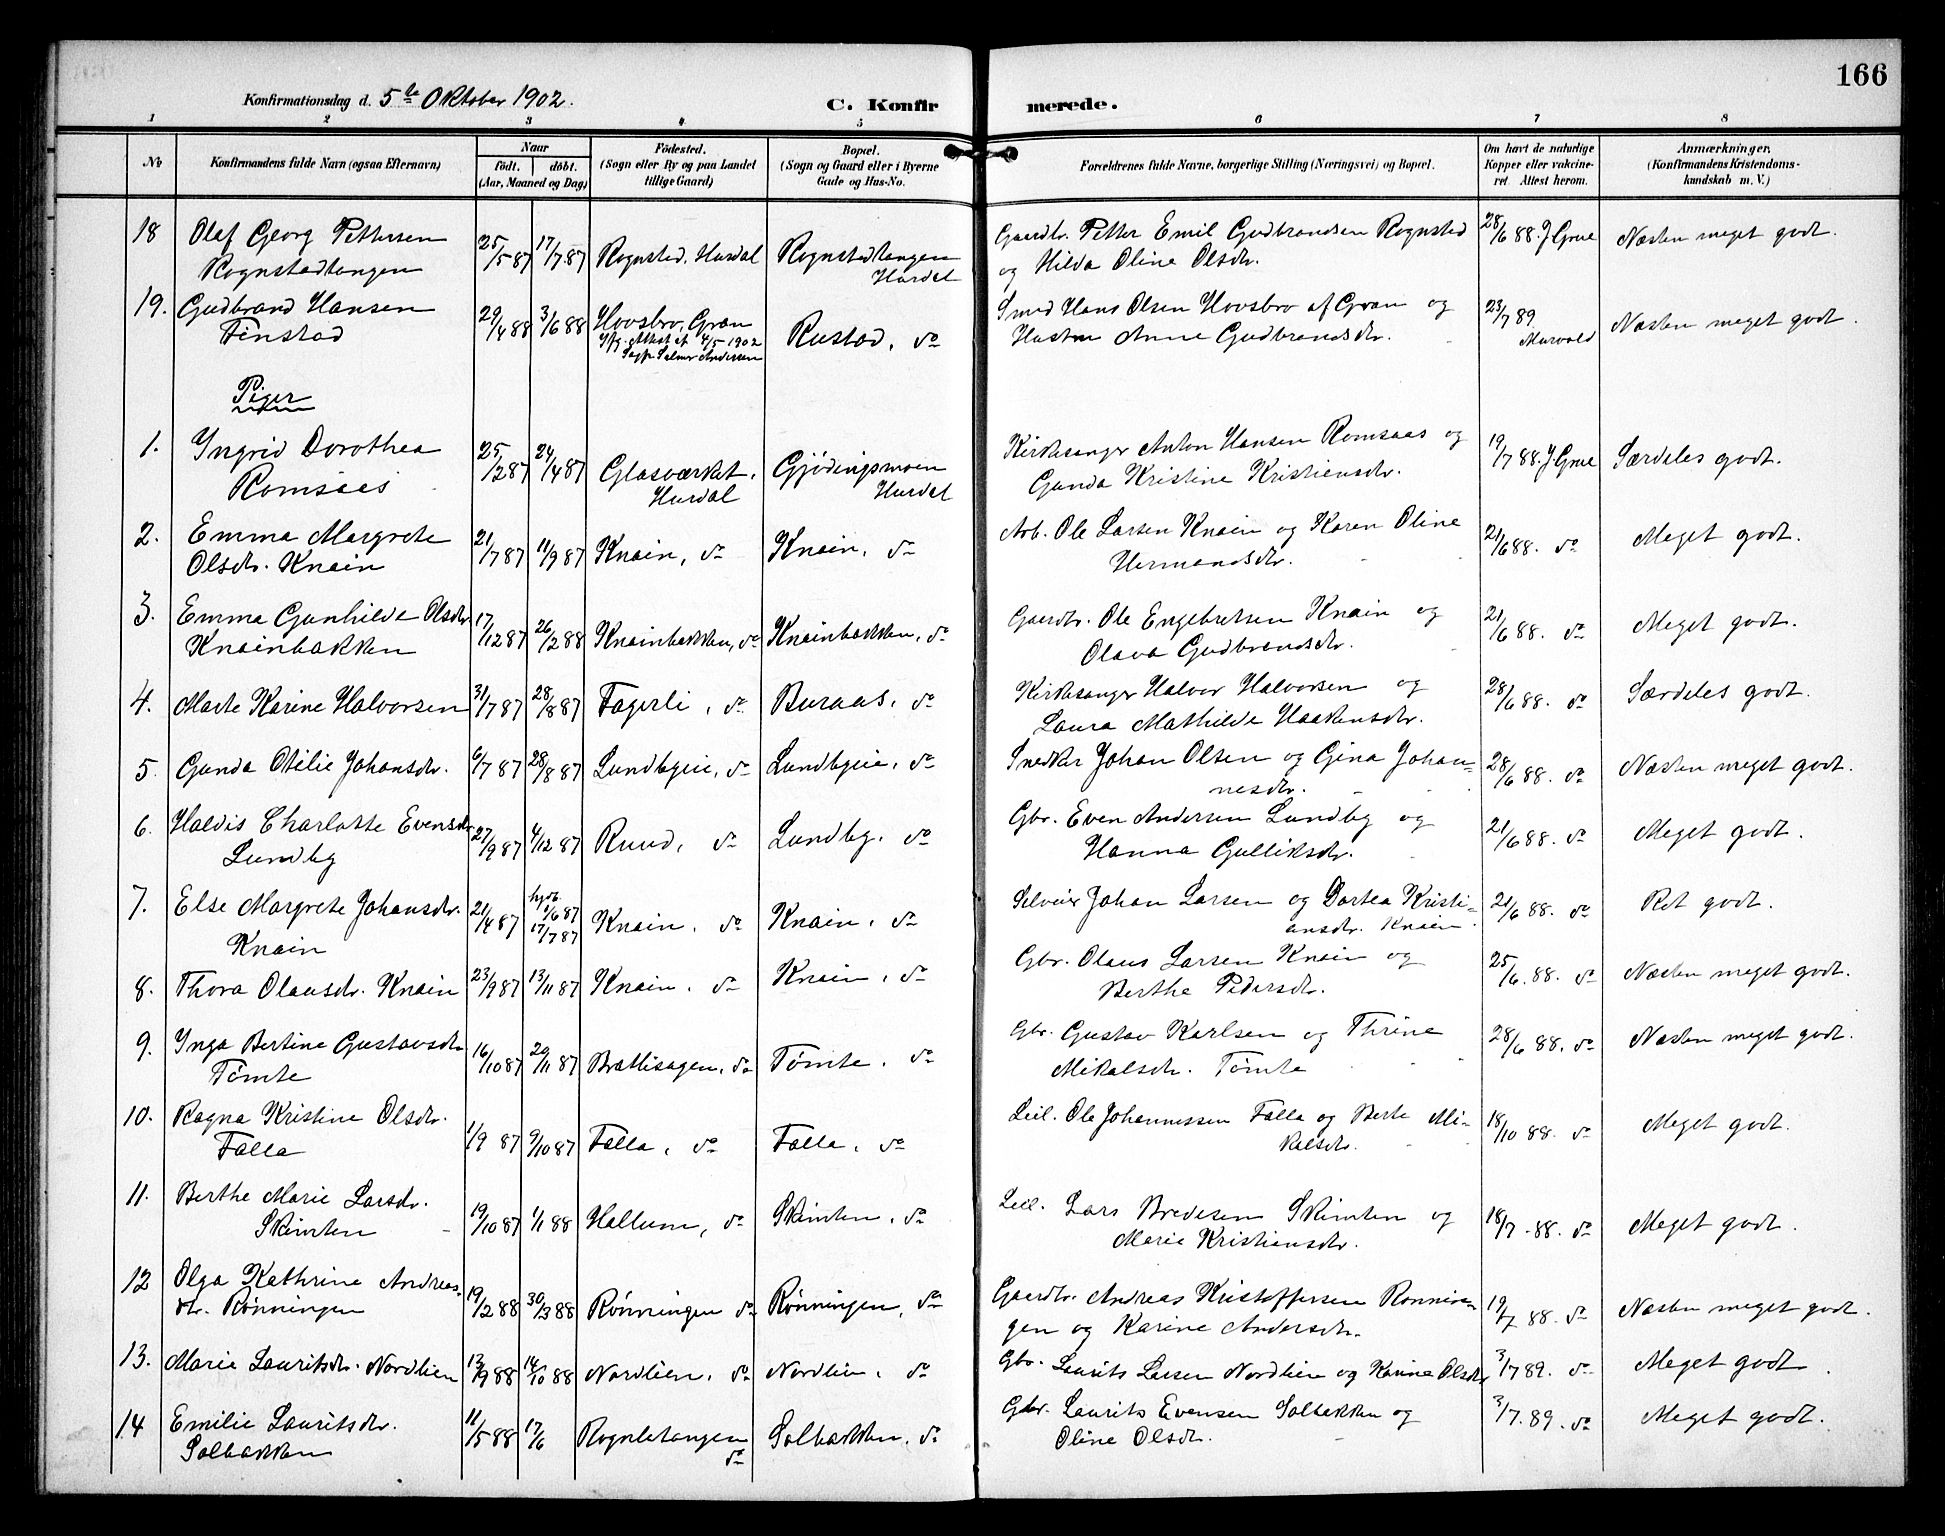 166
Konfirmationsdag d. 5te Oktober 1902.
C. Konfirmerede.
1 2 3 4 5 6 7 8
No
Konfirmandens fulde Navn (ogsaa Efternavn)
Naar
født. døbt.
(Aar, Maaned og Dag)
Fødested.
(Sogn eller By og paa Landet
tillige Gaard)
Bopæl.
(Sogn og Gaard eller i Byerne
Gade og Hus-No.
Forældrenes fulde Navne, borgerlige Stilling (Næringsvei) og Bopæl.
Om havt de naturlige
Kopper eller vakcine-
ret. Attest herom.
Anmærkninger,
(Konfirmandens Kristendoms-
kundskab m. V.)
18 Olaf Georg Pettersen 25/5 87 17/7 87 Rognstad, Hurdal Rognstadtangen Gaardbr. Petter Emil Gudbrandsen Rognstad 28/6 88. J Grue Næsten meget godt.
Rognstadtangen Hurdal og Hilda Oline Olsdr.
19. Gudbrand Hansen 29/4 88 3/6 88 Hovsbro, Gran Rustad, do Smed Hans Olsen Hovsbro af Gran og 23/7 89 Næsten meget godt.
Finstad Ifg. Attest af 4/5 1902 Hustru Anne Gudbrandsdr.
Sogpr. Selmer Andersen
Piger
1. Ingrid Dorothea 25/2 87 24/4 87 Glasværket, Gjødingsmoen Kirkesanger Anton Hansen Romsaas og 19/7 88. J Grue Særdeles godt.
Romsaas Hurdal Hurdal Gunda Kristine Kristiansdr.
2. Emma Margrete 21/7 87 11/9 87 Knain, do Knain, do Arb. Ole Larsen Knain og Karen Oline 21/6 88. do Meget godt.
Olsdr. Knain Hermansdr.
3. Emma Gunhilde Olsdr 17/12 87 26/2 88 Knainbakken, do Knainbakken, do Gaardbr. Ole Engebretsen Knain og 21/6 88. do Meget godt.
Knainbakken Olava Gudbrandsdr.
4. Marte Karine Halvorsen 31/7 87 28/8 87 Fagerli, do Buraas, do Kirkesanger Halvor Halvorsen og 28/6 88. do Særdeles godt.
Laura Mathilde Haakensdr.
5. Gunda Otilie Johansdr. 6/7 87 28/8 87 Lundbyeie, do Lundbyeie, do Snedker Johan Olsen og Gina Johan- 28/6 88. do Næsten meget godt.
nesdr.
6. Haldis Charlotte Evensdr 27/9 87 4/12 87 Ruud, do Lundby, do Gbr. Even Andersen Lundby og 21/6 88. do Meget godt.
Lundby Hanna Gulliksdr.
7. Else Margrete Johansdr. 21/4 87 hjdt. 1/6 87 17/7 87 Knain, do Knain, do Selveier Johan Larsen og Dortea Kristi- 21/6 88. do Ret godt.
Knain ansdr. Knain
8. Thora Olausdr. Knain 23/9 87 13/11 87 Knain, do Knain, do Gbr. Olaus Larsen Knain og 25/6. 88. do Næsten meget godt.
Berthe Pedersdr.
9. Inga Bertine Gustavsdr 16/10 87 20/11 87 Brattisagen, do Tømte, do Gbr. Gustav Karlsen og Thrine 28/6 88. do Næsten meget godt.
Tømte Mikalsdr. Tømte
10. Ragna Kristine Olsdr. 1/9 87 9/10 87 Falla, do Falla, do Leil. Ole Johannessen Falla og Berte Mi- 18/10 88. do Meget godt.
Falla kalsdr.
11. Berthe Marie Larsdr. 19/10 87 1/1 88 Hallum, do Skimten, do Leil. Lars Bredesen Skimten og 18/7. 88. do Meget godt.
Skimten Marie Kristiansdr.
12 Olga Kathrine Andreas- 19/2 88 30/3 88 Rønningen do Rønningen, do Gaardbr. Andreas Kristoffersen Rønnin- 19/7 88. do Næsten meget godt.
dr. Rønningen gen og Karine Andersdr.
13. Marie Lauritsdr. Nordlien 13/9 88 14/10 88 Nordlien, do Nordlien, do Gbr. Laurits Larsen Nordlien og Karine Olsdr 3/7 89. do Meget godt
14 Emilie Lauritsdr. 11/5 88 17/6 Rognletangen Solbakken, do Gbr. Laurits Evensen Solbakken og 3/7. 89. do Meget godt.
Solbakken do Oline Olsdr.